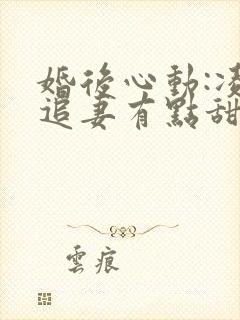 婚後心動:凌
追妻有點甜
雲痕